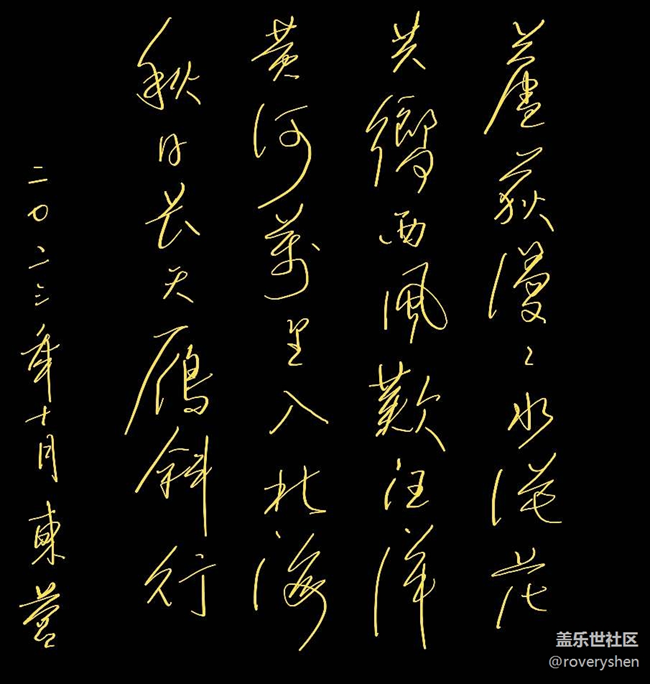 蘆荻漫〻水茫茫
共嚮西風歎汪洋
黄河萬里入北海
秋日长天鴈斜行
二〇二三年十月東營
盖乐世社区
@roveryshen